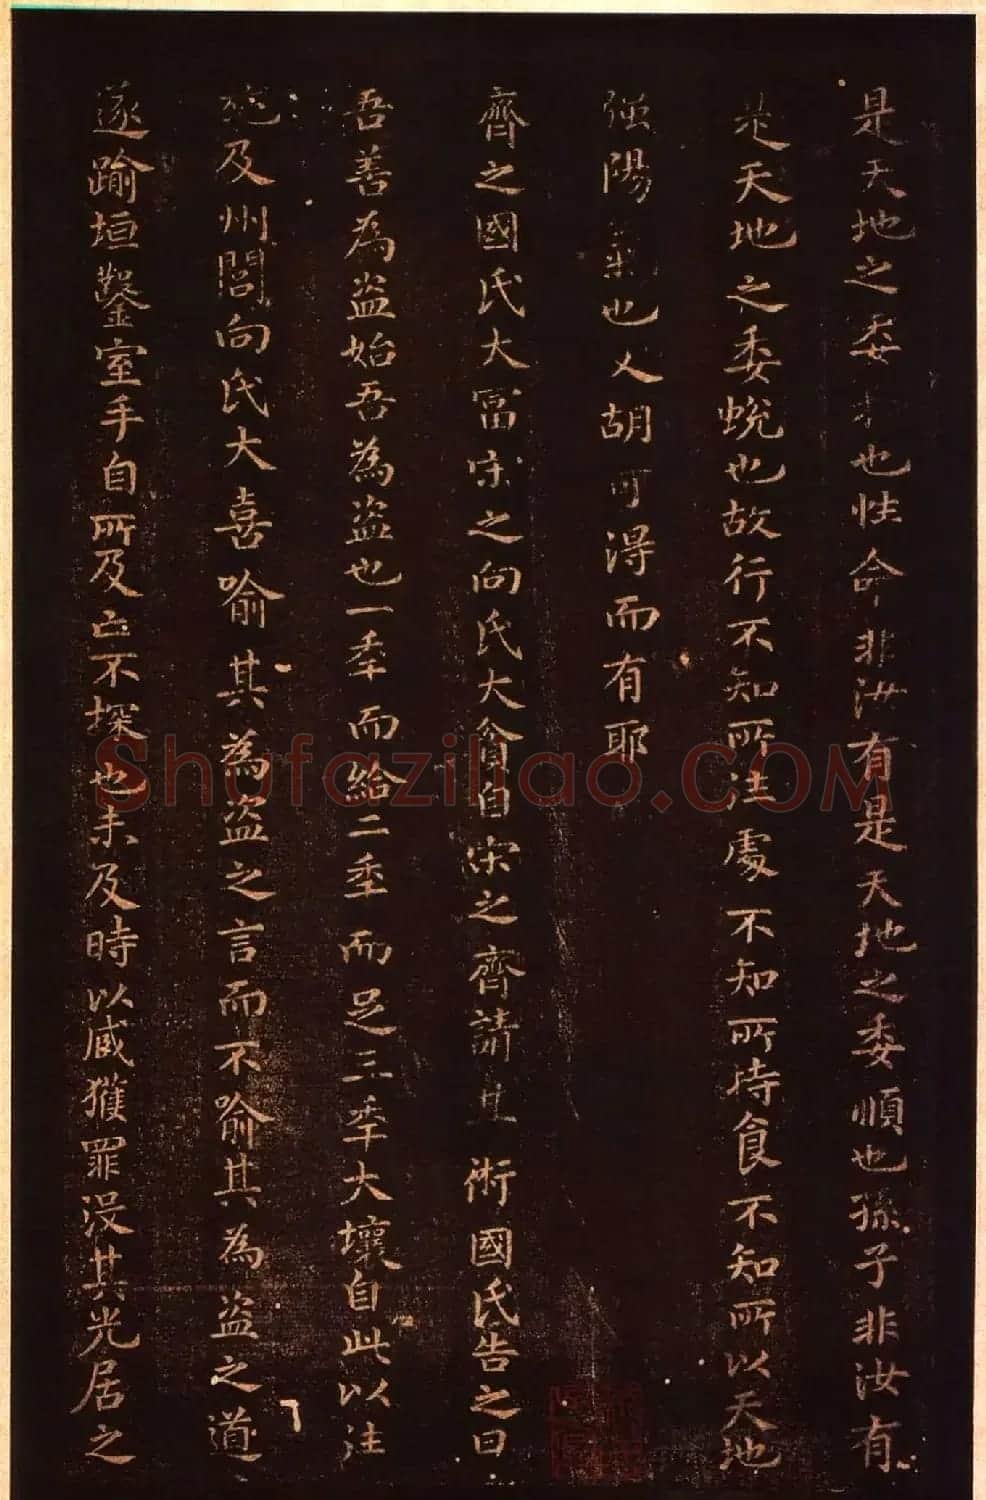 是天地之委和也性命非汝有是天地之委順也孫子非汝有
是天地之委蛻也故行不知所往處不知所持食不知所以天地
强陽氣也又胡可得而有耶
齊之國氏大富宋之向氏大貧自宋之齊請其術國氏告之曰
吾善為盜始吾為盜也一年而給二年而足三年大壤自此以往
施及州閭向氏大喜喻其為盜之言而不喻其為盜之道
遂踰垣鑿室手自所及亡不探也未及時以臧獲罪沒其先居之
Shufaziliao.COM